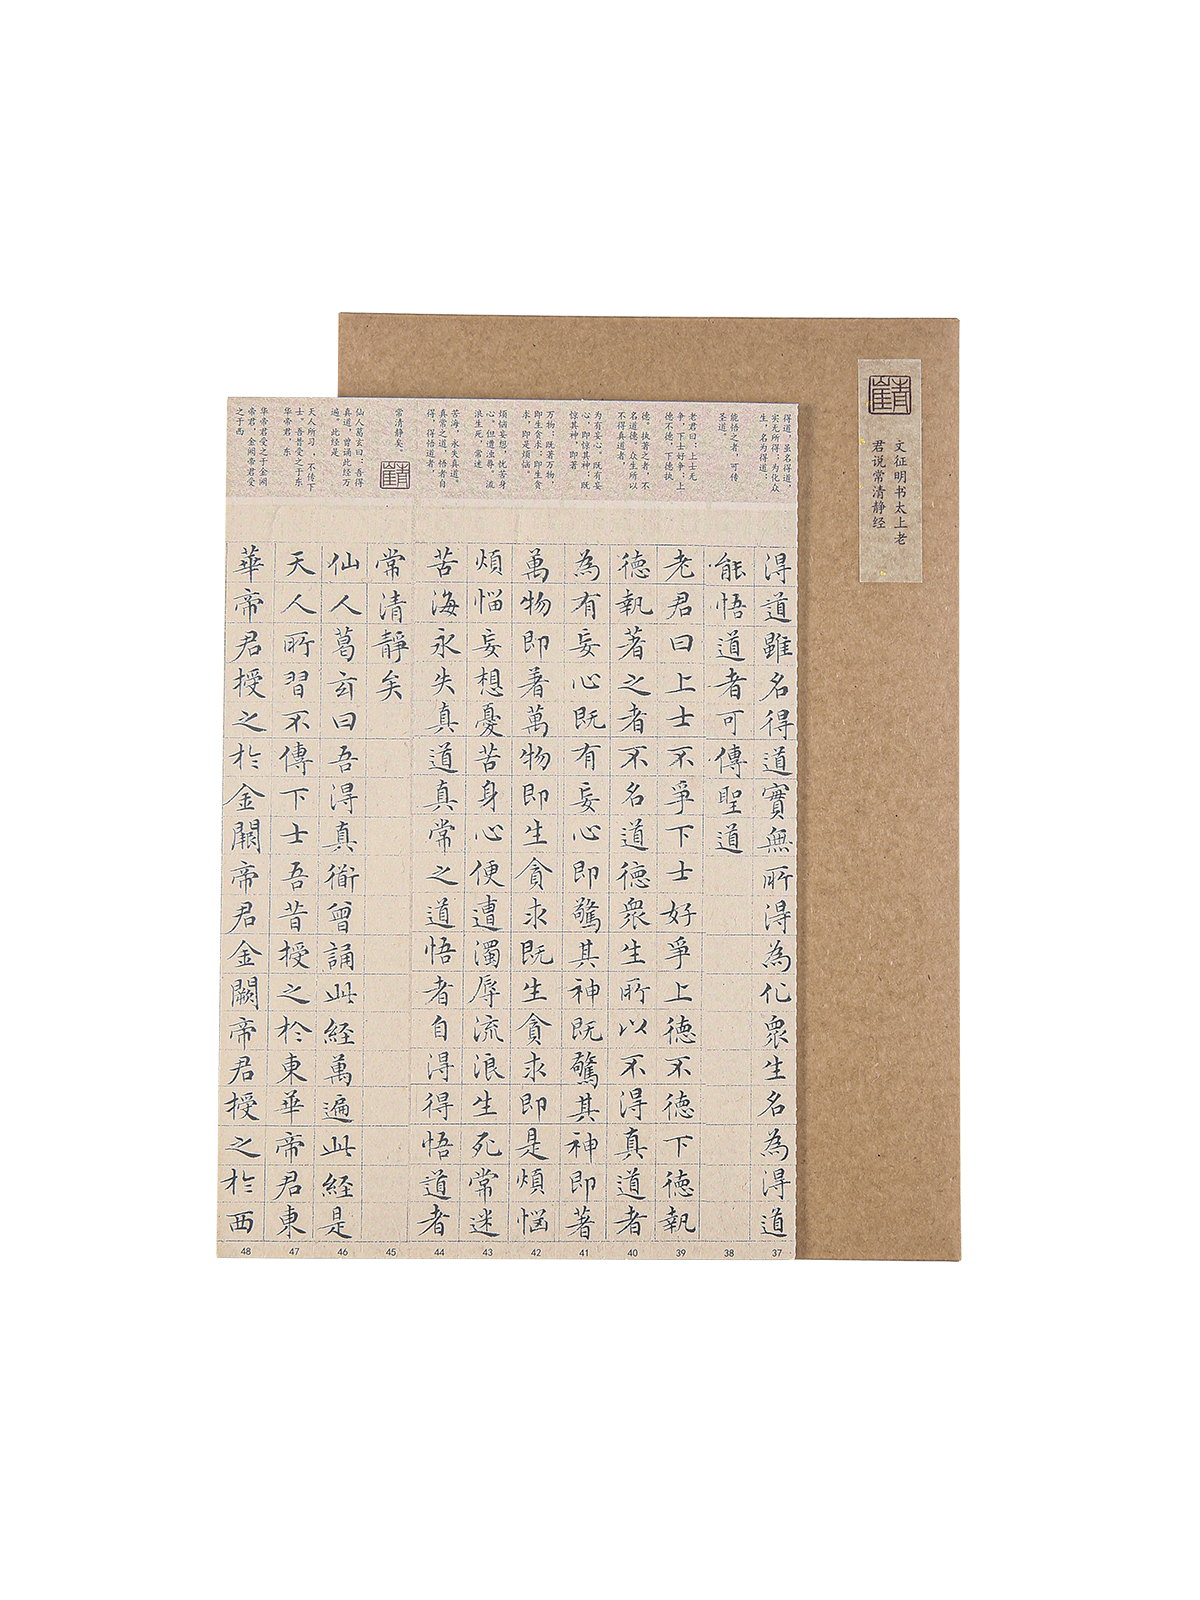 文征明书太上老
君说常清静经
得道，虽名得道，
实无所得；为化众
生，名为得道；
能悟之者，可传
圣道。
老君曰：上士无
争，下士好争；上
德不德，下德执
德。执著之者，不
名道德。众生所以
不得真道者，
为有妄心。既有妄
心，即惊其神；既
惊其神，即著
万物；既著万物，
即生贪求；即生贪
求，即是烦恼。
烦恼妄想，忧苦身
心。但遭浊辱，流
浪生死，常迷
苦海，永失真道。
真常之道，悟者自
得，得悟道者
常清静矣。
仙人葛玄曰：吾得
真道，曾诵此经万
遍。此经是
天人所习，不传下
士。吾昔受之于东
华帝君，东
华帝君受之于金阙
帝君，金阙帝君受
之于西
得道雖名得道實無所得為化衆生名為得道
能悟道者可傳聖道
老君曰上士不爭下士好爭上德不德下德執
德執著之者不名道德衆生所以不得真道者
為有妄心既有妄心即驚其神既驚其神即著
萬物即著萬物即生貪求既生貪求即是煩惱
煩惱妄想憂苦身心便遭濁辱流浪生死常迷
苦海永失真道真常之道悟者自得得悟道者
常清靜矣
仙人葛玄曰吾得真衜曾誦此經萬遍此經是
天人所習不傳下士吾昔授之於東華帝君東
華帝君授之於金闕帝君金闕帝君授之於西
48 47 46 45 44 43 42 41 40 39 38 37